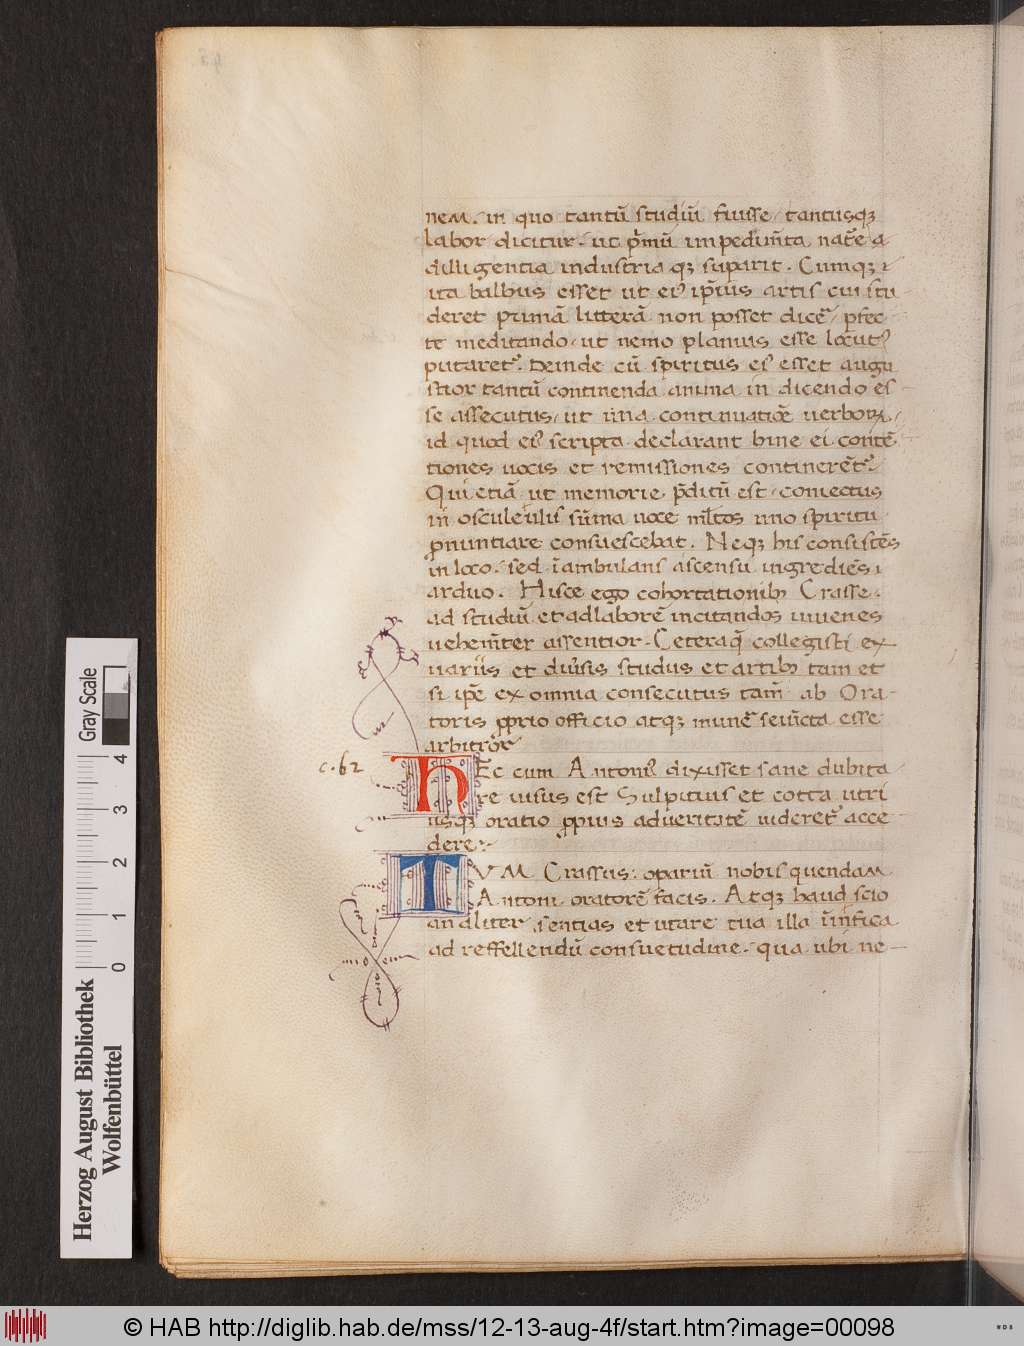 nem. in quo tantū studiū fuisse, tantusqꝫ
labor dicitur. ut p̄mū impedim̄ta nat̄e a
dilligentia industria qꝫ suparit. Cumqꝫ
ita balbus esset ut eiꝰ ip̄ius artis cui stu
deret primā litterā non posset dicē, pfec
te meditando, ut nemo planius esse locutꝰ
putaret. Deinde cū spiritus eiꝰ esset angu
stior tantū continenda anima in dicendo es
se assecutus, ut una continuatiōe uerboꝝ,
id quod eiꝰ scripta declarant bine ei contē
tiones uocis et remissiones continerēt.
Qui etiā ut memorie p̄ditū est, coniectus
in os culculis sūma uoce ml̄tos uno spiritu
ꝓnuntiare consuescebat. Neqꝫ his consistēs
in loco. sed īambulans ascensu ingrediēs
arduo. Hisce ego cohortationibꝫ Crasse.
ad studiū et ad laborē incitandos iuuenes
uehem̄ter assentior. Cetera q̄ collegisti ex
uariis et diuīsis studiis et artibꝫ tam et
si ip̄e ex omnia consecutus tam̄ ab Ora-
toris ꝓprio officio atqꝫ munē seiūcta esse
arbitror
c. 62
HEc cum Antoniꝰ dixisset sane dubita
re uisus est Sulpitius et cotta utri
usqꝫ oratio ꝓpius ad ueritatē uideret acce
dere:
TUM Crassus: opariū nobis quendam
Antoni oratorē facis. Atqꝫ haud scio
an aliter sentias et utare tua illa
ad reffellendū consuetudine. qua ubi ne-
Herzog August Bibliothek
Wolfenbüttel
0 1 2 3 4
Gray Scale
© HAB http://diglib.hab.de/mss/12-13-aug-4f/start.htm?image=00098